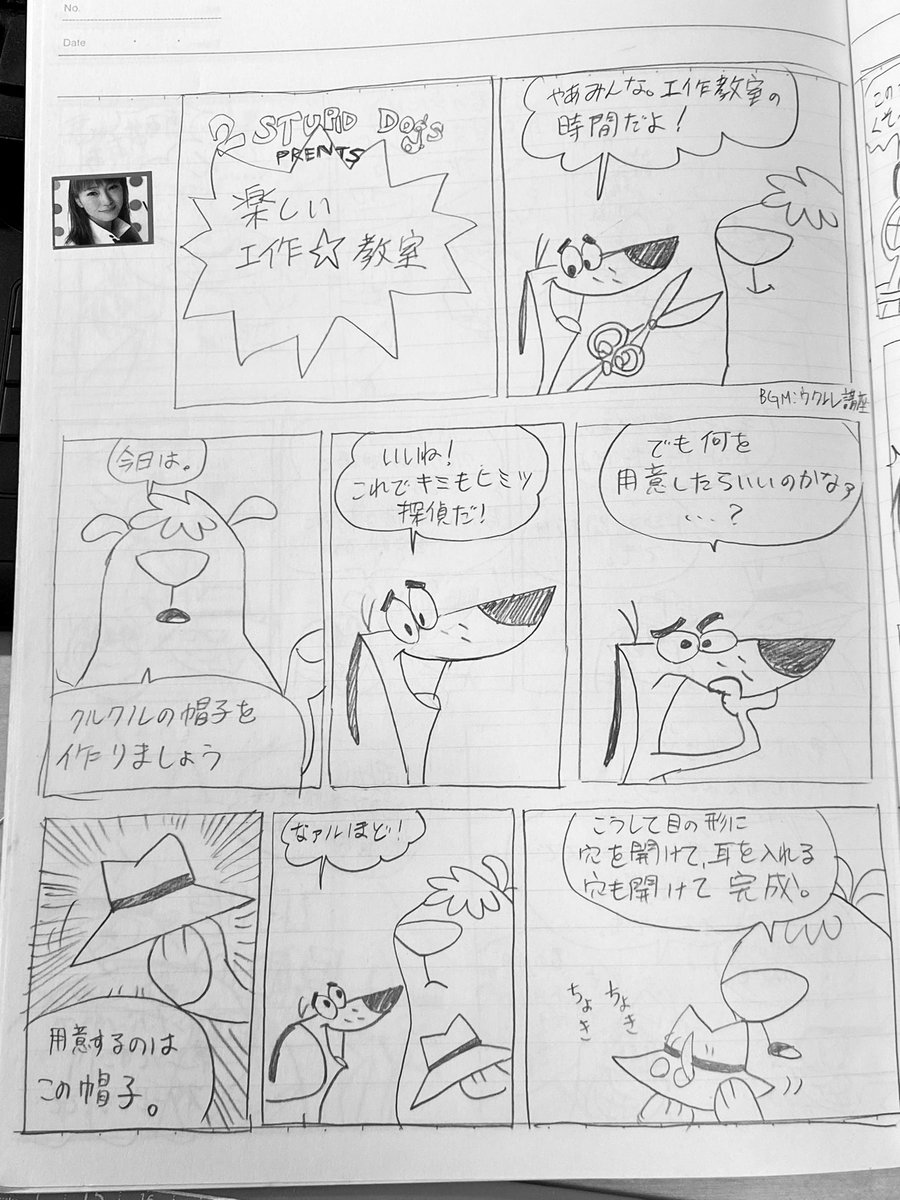 No.
Date
2 STUPID DOGS
PRENTS
楽しい
工作☆教室
やあみんな。工作教室の
時間だよ!
BGM:ウクレレ講座
今日は。
クルクルの帽子を
作りましょう
いいね!
これでキミもヒミツ
探偵だ!
でも何を
用意したらいいのかなァ
…?
用意するのは
この帽子。
なァルほど!
こうして目の形に
穴を開けて、耳を入れる
穴も開けて完成。
ちょき
ちょき
この